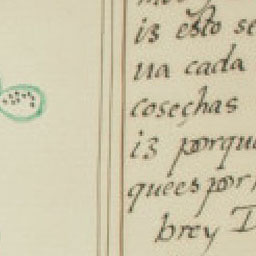 is esto se
ua cada
cosechas
is porqu
quees por
brey D